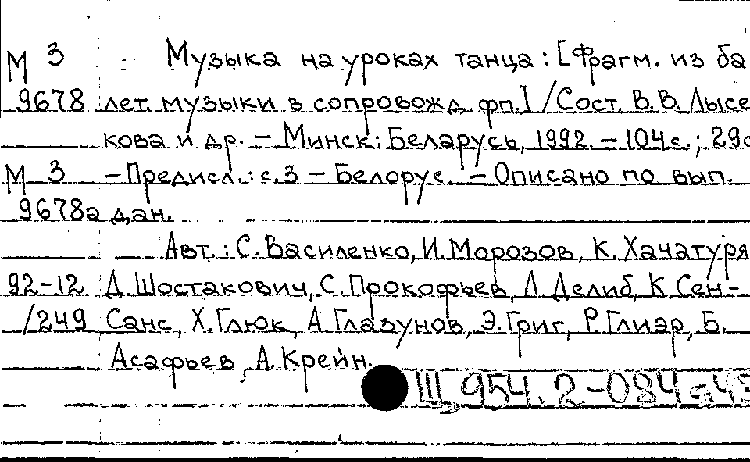 М 3 Музыка на уроках танца : [Фрагм. из ба
9678 лет. музыки в сопровожд. фп.] / Сост. В.В. Лысе
кова и др. – Минск : Беларусь, 1992 – 104с. ; 29с
М 3 – Предисл.: с.3 – Белорус. – Описано по вып.
9678а дан.
Авт. : С. Василенко, И. Морозов, К. Хачатуря
92-12 Д. Шостакович, С. Прокофьев, Л. Делиб, К. Сен-
/249 Санс, Х. Глюк, А. Глазунов, Э. Григ, Р. Глиэр, Б.
Асафьев, А. Крейн.
Щ 954.2-084